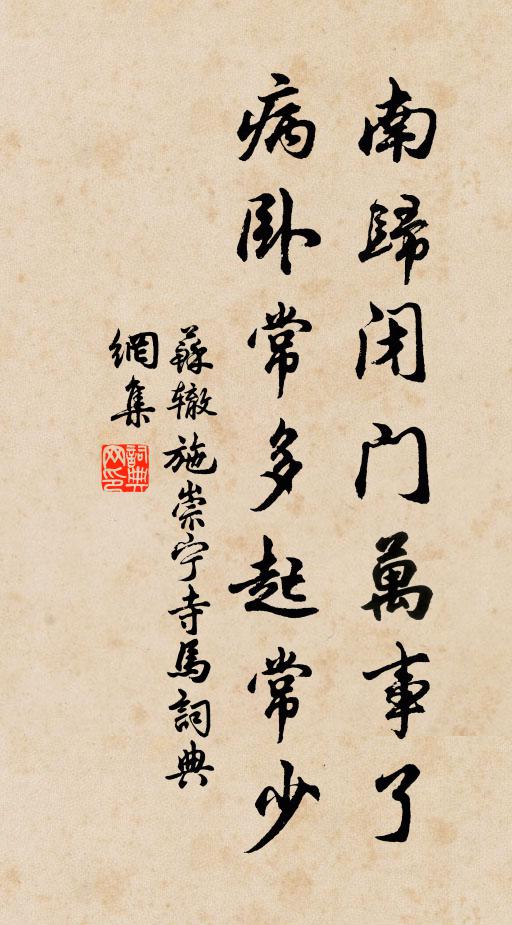 南歸闭门萬事了
病卧常多起常少
蘇辙施崇宁寺馬詞典
網集
詞典
网印